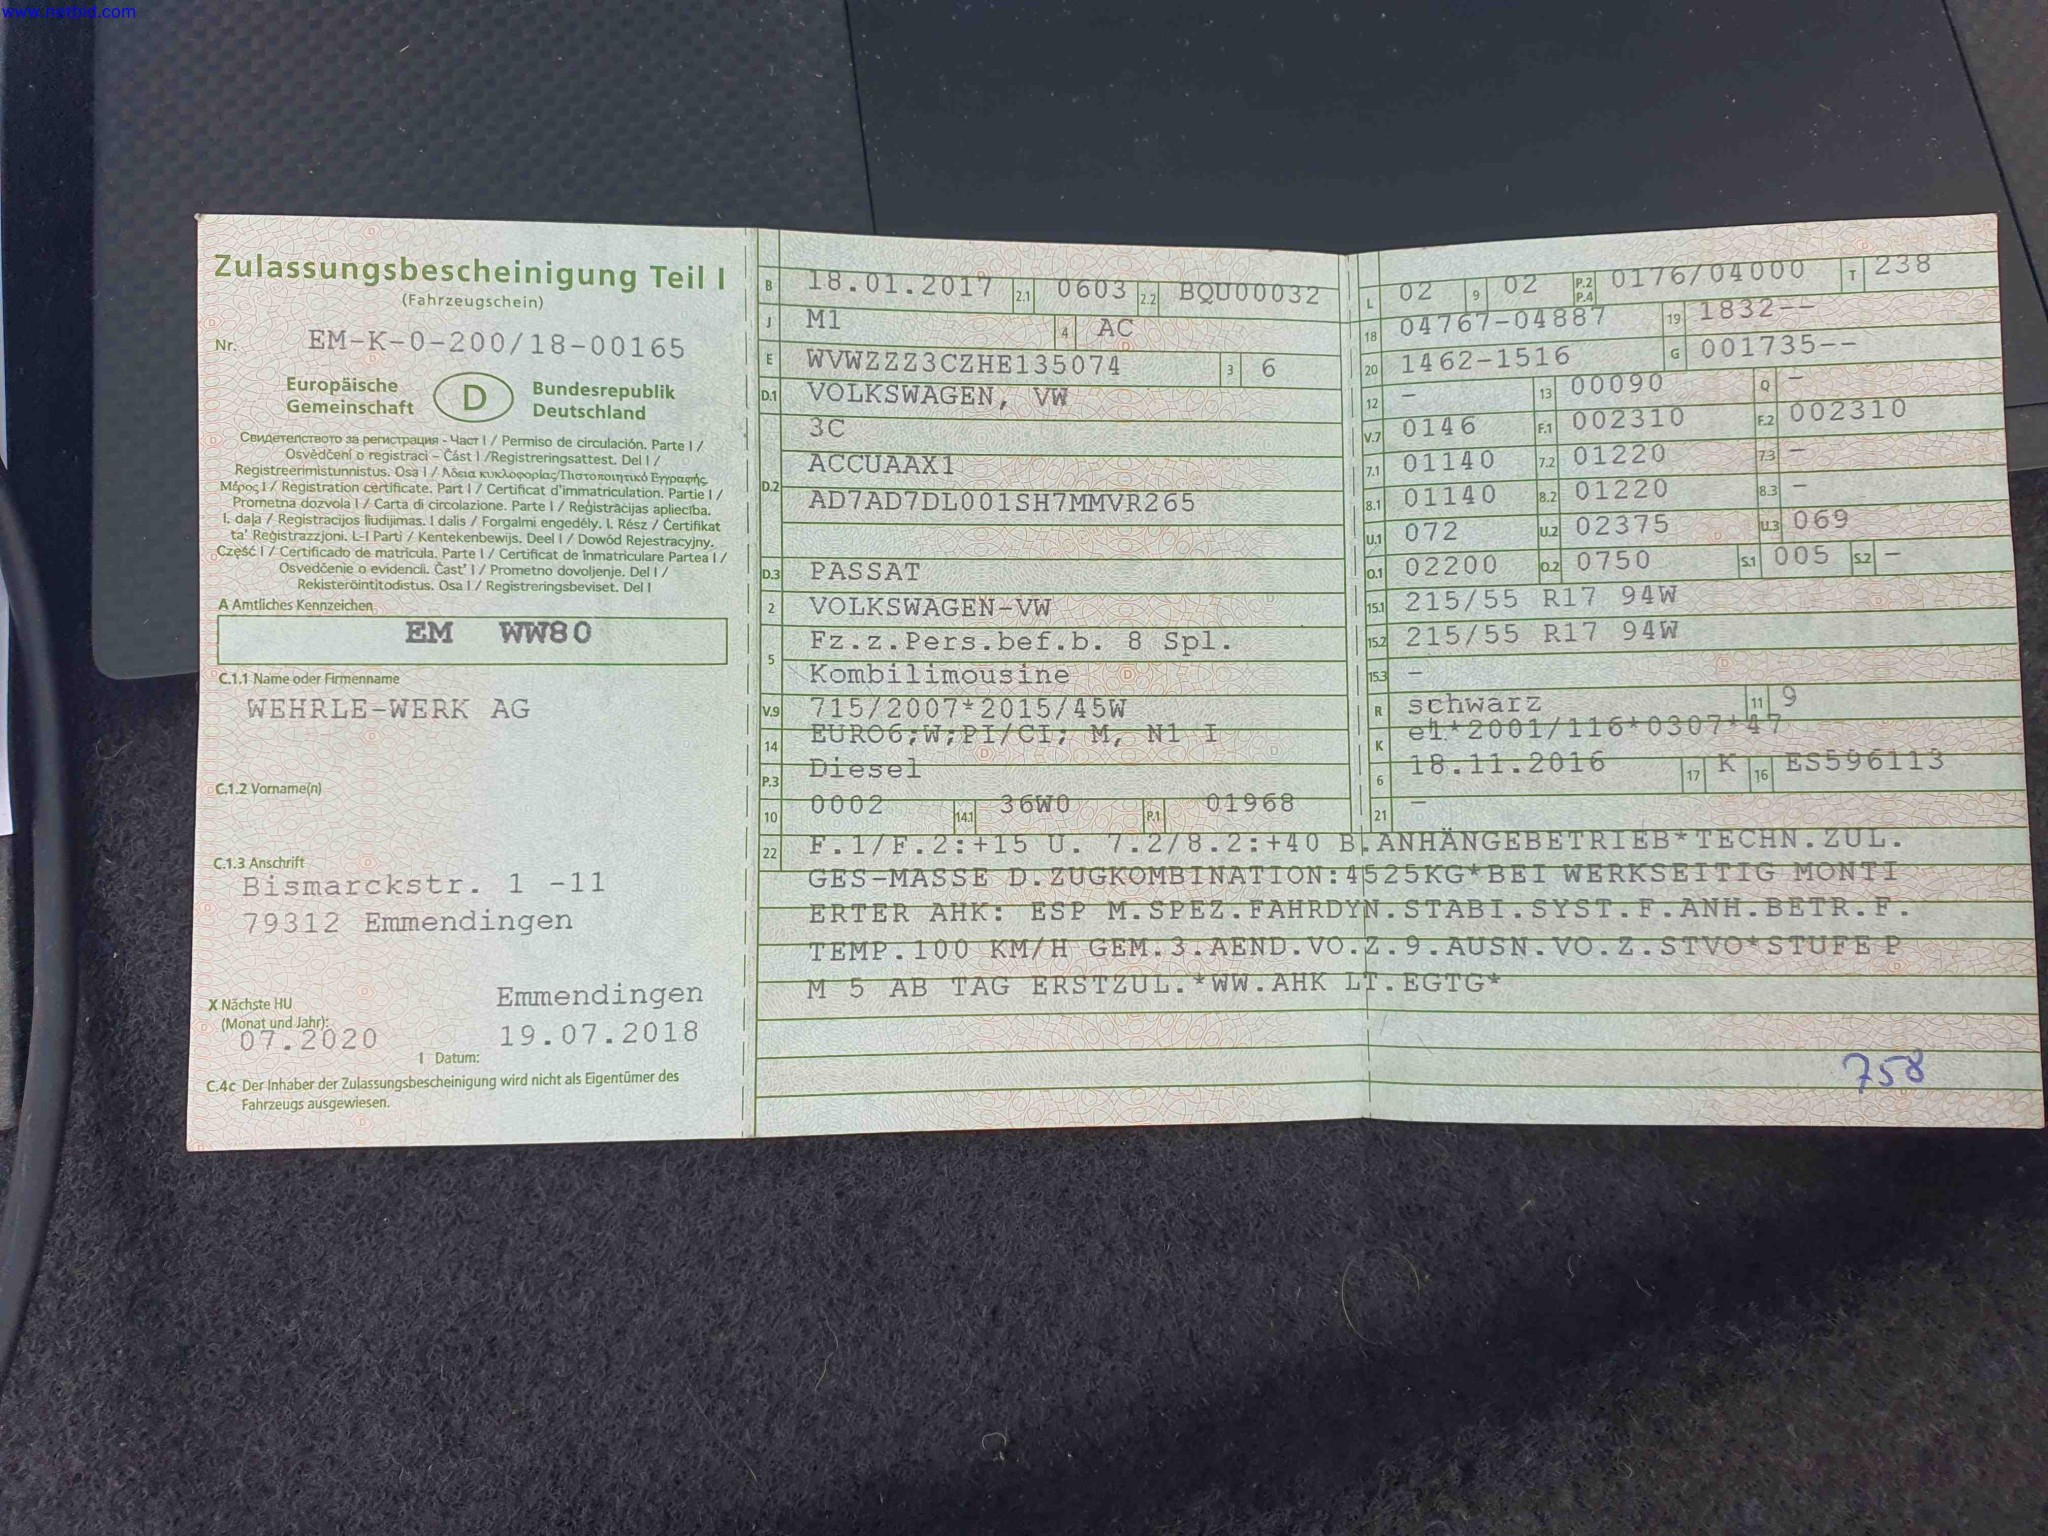 www.hstbid.com
Zulassungsbescheinigung Teil I
(Fahrzeugschein)
Nr. EM-K-0-200/18-00165
Europäische Gemeinschaft
D
Bundesrepublik Deutschland
Свидетелството за регистрация - Част I / Permiso de circulación. Parte I /
Osvědčení o registraci – Část I / Registreringsattest. Del I /
Registreerimistunnistus. Osa I / Άδεια κυκλοφορίας/Πιστοποιητικό Εγγραφής
Μέρος I / Registration certificate. Part I / Certificat d'immatriculation. Partie I /
Prometna dozvola I / Carta di circolazione. Parte I / Reģistrācijas apliecība.
I. daļa / Registracijos liudijimas. I dalis / Forgalmi engedély. I. Rész / Ċertifikat
ta' Reġistrazzjoni. L-I Parti / Kentekenbewijs. Deel I / Dowód Rejestracyjny.
Część I / Certificado de matrícula. Parte I / Certificat de înmatriculare Partea I /
Osvedčenie o evidencii. Časť I / Prometno dovoljenje. Del I /
Rekisteröintitodistus. Osa I / Registreringsbeviset. Del I
A Amtliches Kennzeichen
EM WW80
C.1.1 Name oder Firmenname
WEHRLE-WERK AG
C.1.2 Vorname(n)
C.1.3 Anschrift
Bismarckstr. 1 -11
79312 Emmendingen
X Nächste HU
(Monat und Jahr):
07.2020
Emmendingen
19.07.2018
I Datum:
C.4c Der Inhaber der Zulassungsbescheinigung wird nicht als Eigentümer des
Fahrzeugs ausgewiesen.
B 18.01.2017 2.1 0603 2.2 BQU00032
J M1 4 AC
E WVWZZZ3CZHE135074 3 6
D.1 VOLKSWAGEN, VW
3C
D.2 ACCUAAX1
AD7AD7DL001SH7MMVR265
D.3 PASSAT
2 VOLKSWAGEN-VW
5 Fz.z.Pers.bef.b. 8 Spl.
Kombilimousine
V.9 715/2007*2015/45W
14 EURO6;W;PI/CI; M, N1 I
P.3 Diesel
10 0002 14.1 36W0 P.1 01968
L 02 9 02 P.2 P.4 0176/04000 T 238
18 04767-04887 19 1832--
20 1462-1516 G 001735--
12 - 13 00090 Q -
V.7 0146 F.1 002310 F.2 002310
7.1 01140 7.2 01220 7.3 -
8.1 01140 8.2 01220 8.3 -
U.1 072 U.2 02375 U.3 069
O.1 02200 O.2 0750 S.1 005 S.2 -
15.1 215/55 R17 94W
15.2 215/55 R17 94W
15.3 -
R schwarz 11 9
K e1*2001/116*0307*47
6 18.11.2016 17 K 16 ES596113
21 -
22 F.1/F.2:+15 U. 7.2/8.2:+40 B.ANHÄNGEBETRIEB*TECHN.ZUL.
GES-MASSE D.ZUGKOMBINATION:4525KG*BEI WERKSEITIG MONTI
ERTER AHK: ESP M.SPEZ.FAHRDYN.STABI.SYST.F.ANH.BETR.F.
TEMP.100 KM/H GEM.3.AEND.VO.Z.9.AUSN.VO.Z.STVO*STUFE P
M 5 AB TAG ERSTZUL.*WW.AHK LT.EGTG*
758